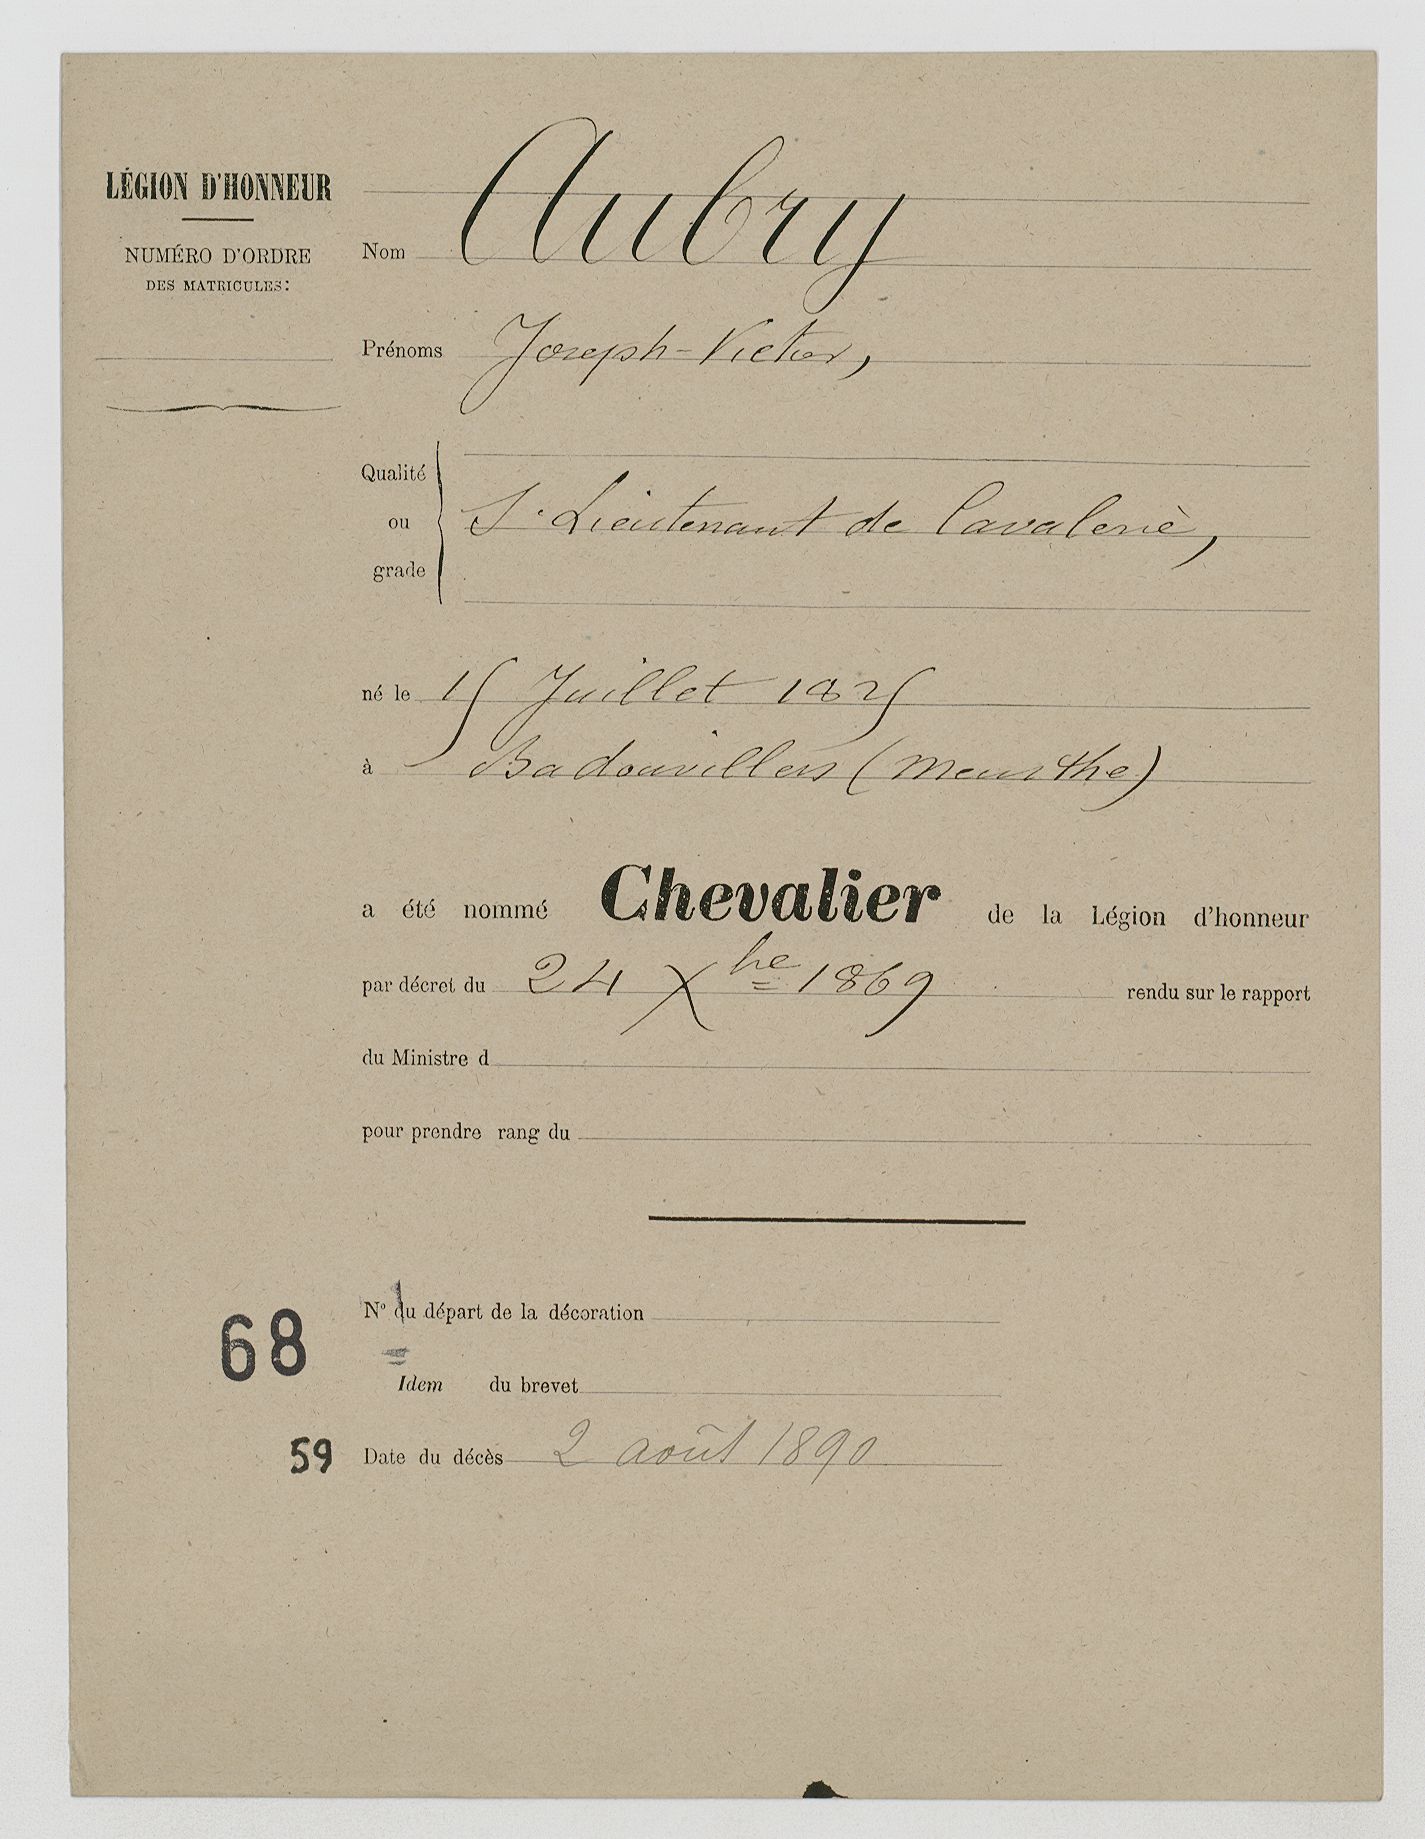 LÉGION D'HONNEUR
NUMÉRO D'ORDRE
DES MATRICULES:
Nom Aubry
Prénoms Joseph-Victor,
Qualité
ou
grade
S. Lieutenant de Cavalerie,
né le 15 Juillet 1825
à Badonvillers (Meurthe)
a été nommé Chevalier de la Légion d'honneur
par décret du 24 Xbre 1869 rendu sur le rapport
du Ministre d
pour prendre rang du
68
N° du départ de la décoration
Idem du brevet
59
Date du décès 2 août 1890